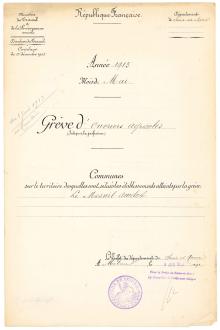 République Française.
Ministère
du Travail
et de la
Prévoyance
sociale
Département
de Seine-et-Marne
Direction du Travail
Circulaire
du 17 décembre 1903
Année 1913
Mois de Mai
Grève d'Ouvriers agricoles
(Indiquer la profession)
Communes
sur le territoire desquelles sont situés les établissements atteints par la grève.
Le Mesnil Amelot
Le Préfet du département de Seine et Marne
A Melun